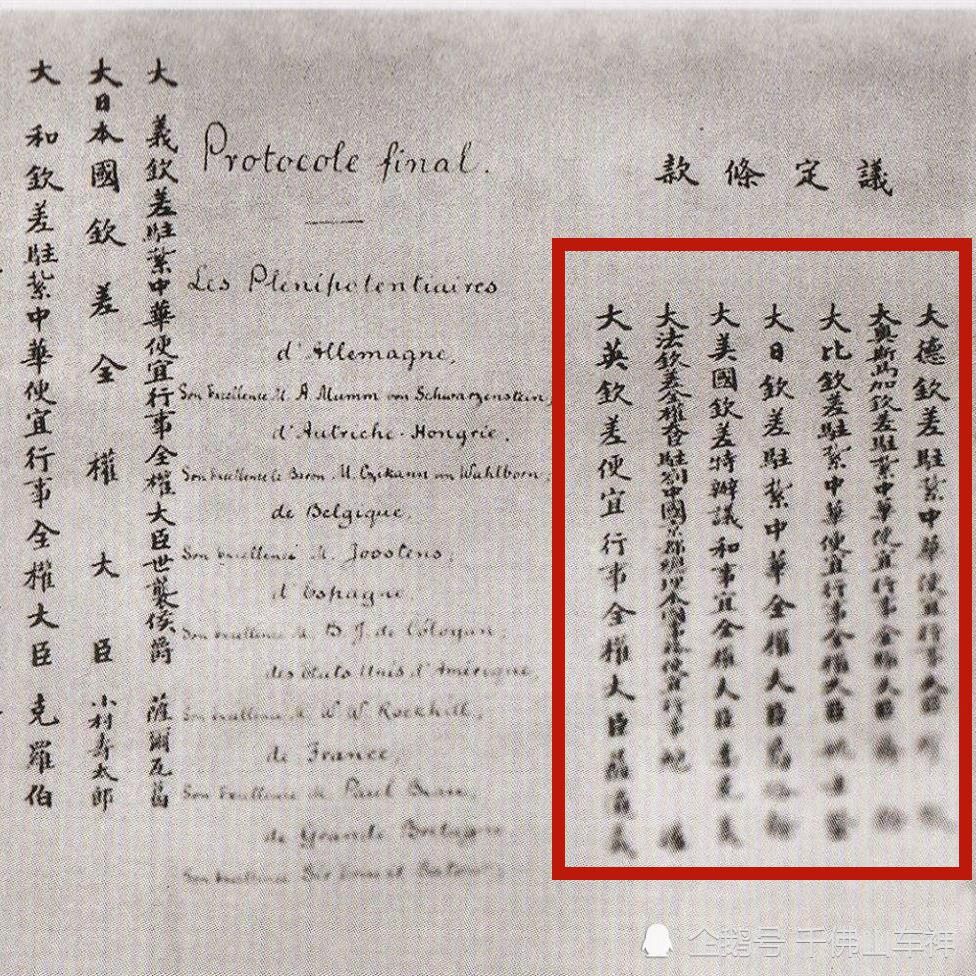 議定條款
大德欽差駐紮中華便宜行事
大奧斯馬加欽差駐紮中華便宜行事全權大臣
大比欽差駐紮中華便宜行事全權大臣
大日欽差駐紮中華全權大臣
大美國欽差特辦議和事宜全權大臣柔克義
大法欽差全權大臣駐劄中國京都總理本國事務便宜行事
大英欽差便宜行事全權大臣薩道義
Protocole final.
Les Plénipotentiaires
d'Allemagne,
Son Excellence M. A. Mumm von Schwarzenstein;
d'Autriche-Hongrie,
Son Excellence le Baron M. Czikann von Wahlborn;
de Belgique,
Son Excellence M. Joostens;
d'Espagne,
Son Excellence M. B. J. de Cologan;
des États Unis d'Amérique,
Son Excellence M. W. W. Rockhill;
de France,
Son Excellence M. Paul Beau;
de Grande Bretagne,
Son Excellence Sir Ernest Satow;
大義欽差駐紮中華便宜行事全權大臣世襲侯爵薩爾瓦葛
大日本國欽差全權大臣小村壽太郎
大和欽差駐紮中華便宜行事全權大臣克羅伯
企鹅号 千佛山车祥